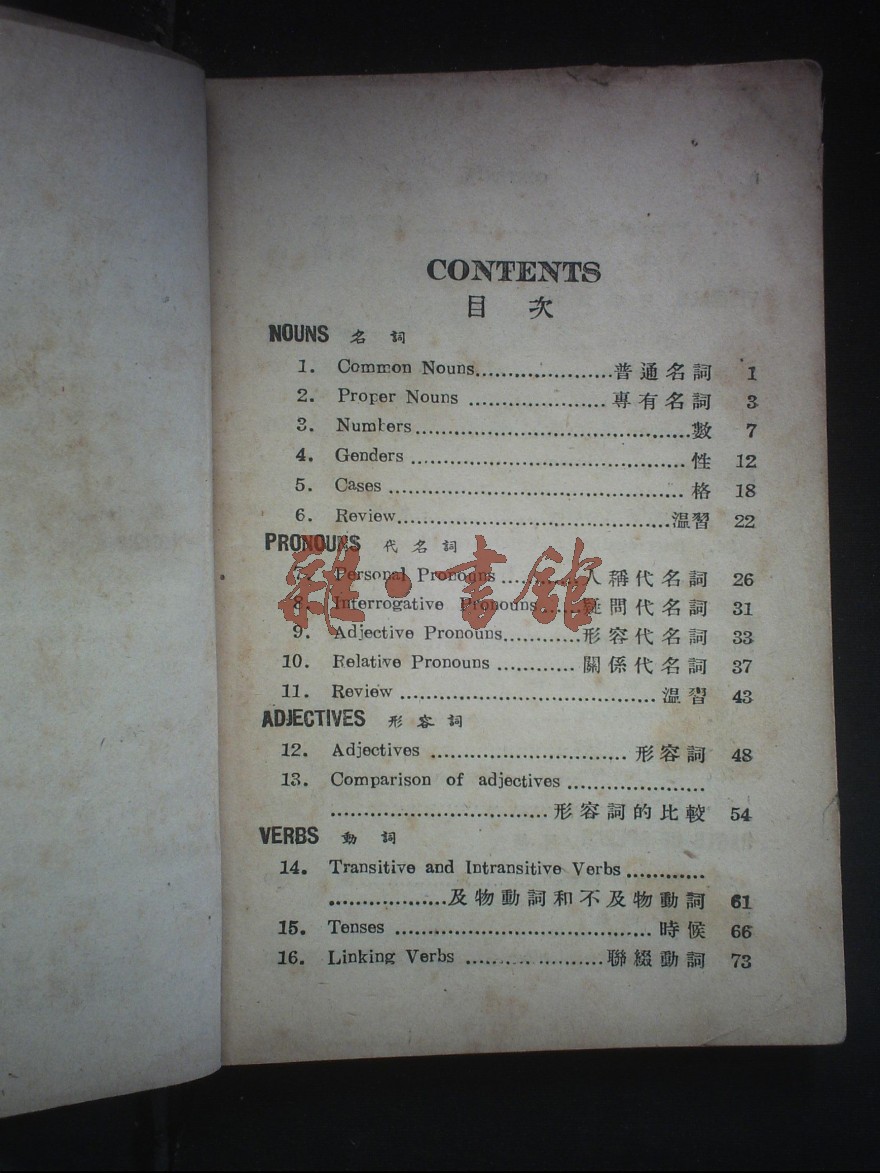 CONTENTS
目 次
NOUNS 名 詞
1. Common Nouns......................普通名詞 1
2. Proper Nouns ......................專有名詞 3
3. Numbers............................................數 7
4. Genders ............................................性 12
5. Cases ...............................................格 18
6. Review............................................溫習 22
PRONOUNS 代 名 詞
7. Personal Pronouns ............人稱代名詞 26
8. Interrogative Pronouns......疑問代名詞 31
9. Adjective Pronouns............形容代名詞 33
10. Relative Pronouns ............關係代名詞 37
11. Review .........................................溫習 43
ADJECTIVES 形 容 詞
12. Adjectives ...............................形容詞 48
13. Comparison of adjectives ......................
...................................形容詞的比較 54
VERBS 動 詞
14. Transitive and Intransitive Verbs ............
...................及物動詞和不及物動詞 61
15. Tenses .........................................時候 66
16. Linking Verbs ......................聯綴動詞 73
雜·書館